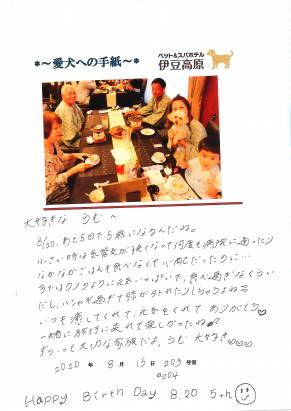 *~愛犬への手紙~*
ペット&スパホテル
伊豆高原
大好きな うむへ
8/20、あと5日で5歳になるんだね。
小さい時は気管支が狭くなって何度も病院に通ったり
なかなかごはんも食べなくて心配だったのに…
今ではワンワンよりに元気いっぱいで、食べ過ぎなくらい
だし、ハシャギ過ぎて膝が外れたりしちゃうよね
いつも癒してくれて、元気をくれて ありがとう
一緒に旅行に来れて楽しかったね
ずーっと大切な家族だよ。うむ 大好き
2020 年 8 月 15 日 203 号室
a204
Happy Birth Day 8.20 5th